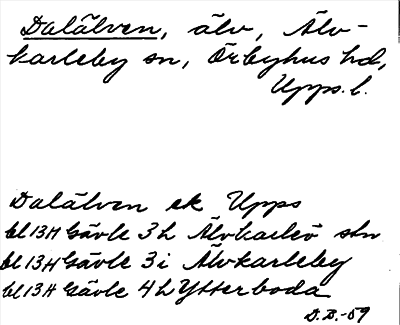 Dalälven, älv, Älv-
karleby sn, Örbyhus hd,
Upps. l.
Dalälven ek Upps
bl 13H Gävle 3h Älvkarleö stn
bl 13H Gävle 3i Älvkarleby
bl 13H Gävle 4h Ytterboda
D.D.-59